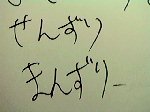 せんずり
まんずりー